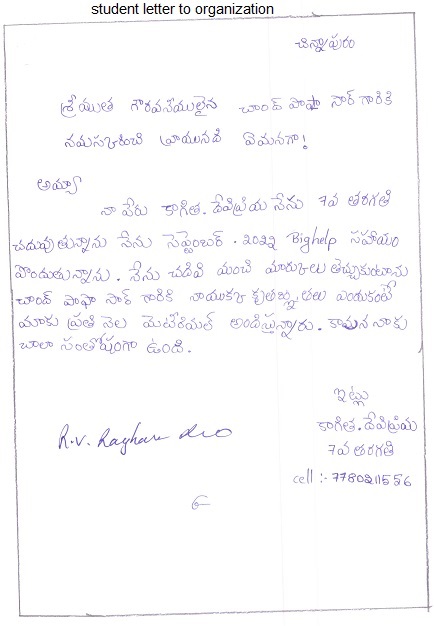 student letter to organization
చిన్నాపురం
శ్రీయుత గౌరవనీయులైన చాంద్ పాషా సార్ గారికి
నమస్కరించి వ్రాయునది ఏమనగా!
అయ్యా
నా పేరు కాగిత. దేవిప్రియ నేను 7వ తరగతి
చదువుతున్నాను నేను సెప్టెంబర్ . 2022 Bighelp సహాయం
పొందుతున్నాను. నేను చదివి మంచి మార్కులు తెచ్చుకుంటాను
చాంద్ పాషా సార్ గారికి నాయొక్క కృతజ్ఞతలు ఎందుకంటే
మాకు ప్రతి నెల మెటేరియల్ అందిస్తున్నారు. కావున నాకు
చాలా సంతోషంగా ఉంది.
ఇట్లు
కాగిత. దేవిప్రియ
7వ తరగతి
cell :- 7780211556
R.V. Raghava Rao